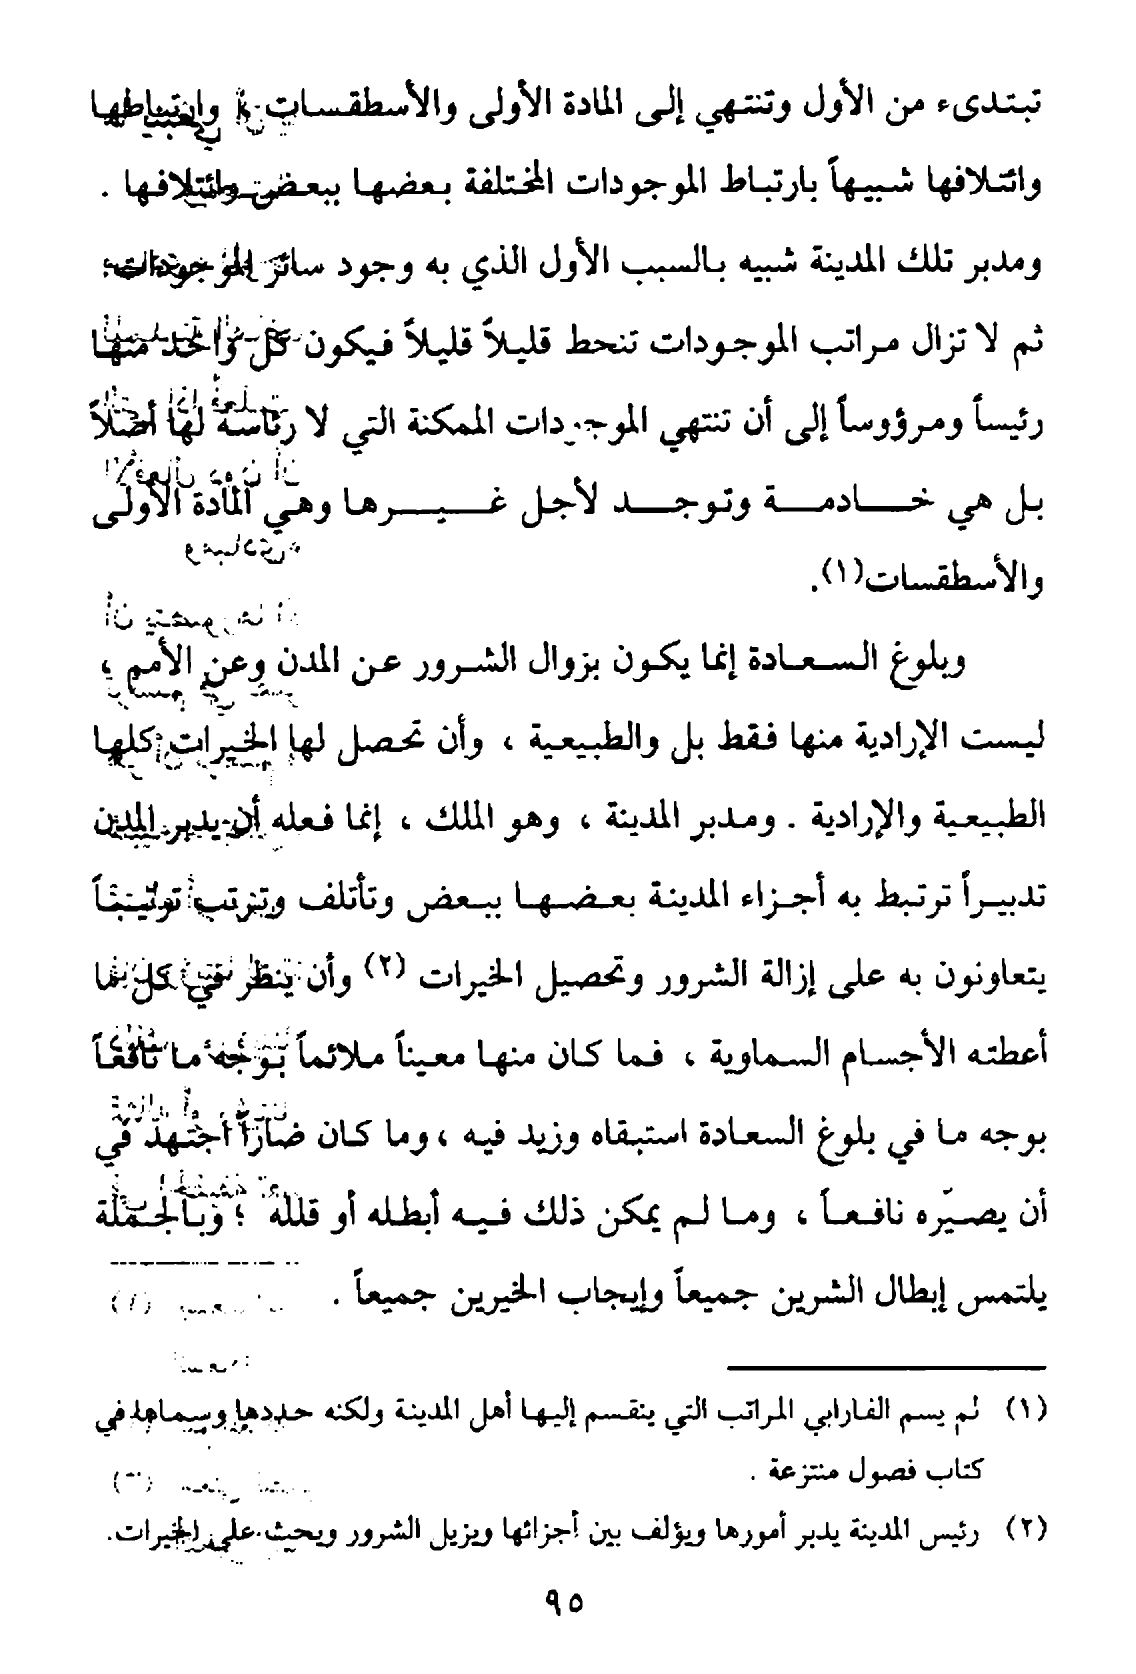 تبتدىء من الأول وتنتهي إلى المادة الأولى والأسطقسات ؛ وارتباطها
وائتلافها شبيهاً بارتباط الموجودات المختلفة بعضها ببعض وائتلافها .
ومدبر تلك المدينة شبيه بالسبب الأول الذي به وجود سائر الموجودات؛
ثم لا تزال مراتب الموجودات تنحط قليلاً قليلاً فيكون كل واحد منها
رئيساً ومرؤوساً إلى أن تنتهي الموجودات الممكنة التي لا رئاسة لها أصلاً
بل هي خادمة وتوجد لأجل غيرها وهي المادة الأولى
والأسطقسات(١).
وبلوغ السعادة إنما يكون بزوال الشرور عن المدن وعن الأمم ،
ليست الإرادية منها فقط بل والطبيعية ، وأن تحصل لها الخيرات كلها
الطبيعية والإرادية . ومدبر المدينة ، وهو الملك ، إنما فعله أن يدبر المدن
تدبيراً ترتبط به أجزاء المدينة بعضها ببعض وتأتلف وتترتب ترتيباً
يتعاونون به على إزالة الشرور وتحصيل الخيرات (٢) وأن ينظر في كل ما
أعطته الأجسام السماوية ، فما كان منها معيناً ملائماً بوجه ما نافعاً
بوجه ما في بلوغ السعادة استبقاه وزيد فيه ، وما كان ضاراً اجتهد في
أن يصيّره نافعاً ، وما لم يمكن ذلك فيه أبطله أو قلله ؛ وبالجملة
يلتمس إبطال الشرين جميعاً وإيجاب الخيرين جميعاً .
(١) لم يسم الفارابي المراتب التي ينقسم إليها أهل المدينة ولكنه حددها وسماها في
كتاب فصول منتزعة .
(٢) رئيس المدينة يدبر أمورها ويؤلف بين أجزائها ويزيل الشرور ويحث على الخيرات.
٩٥